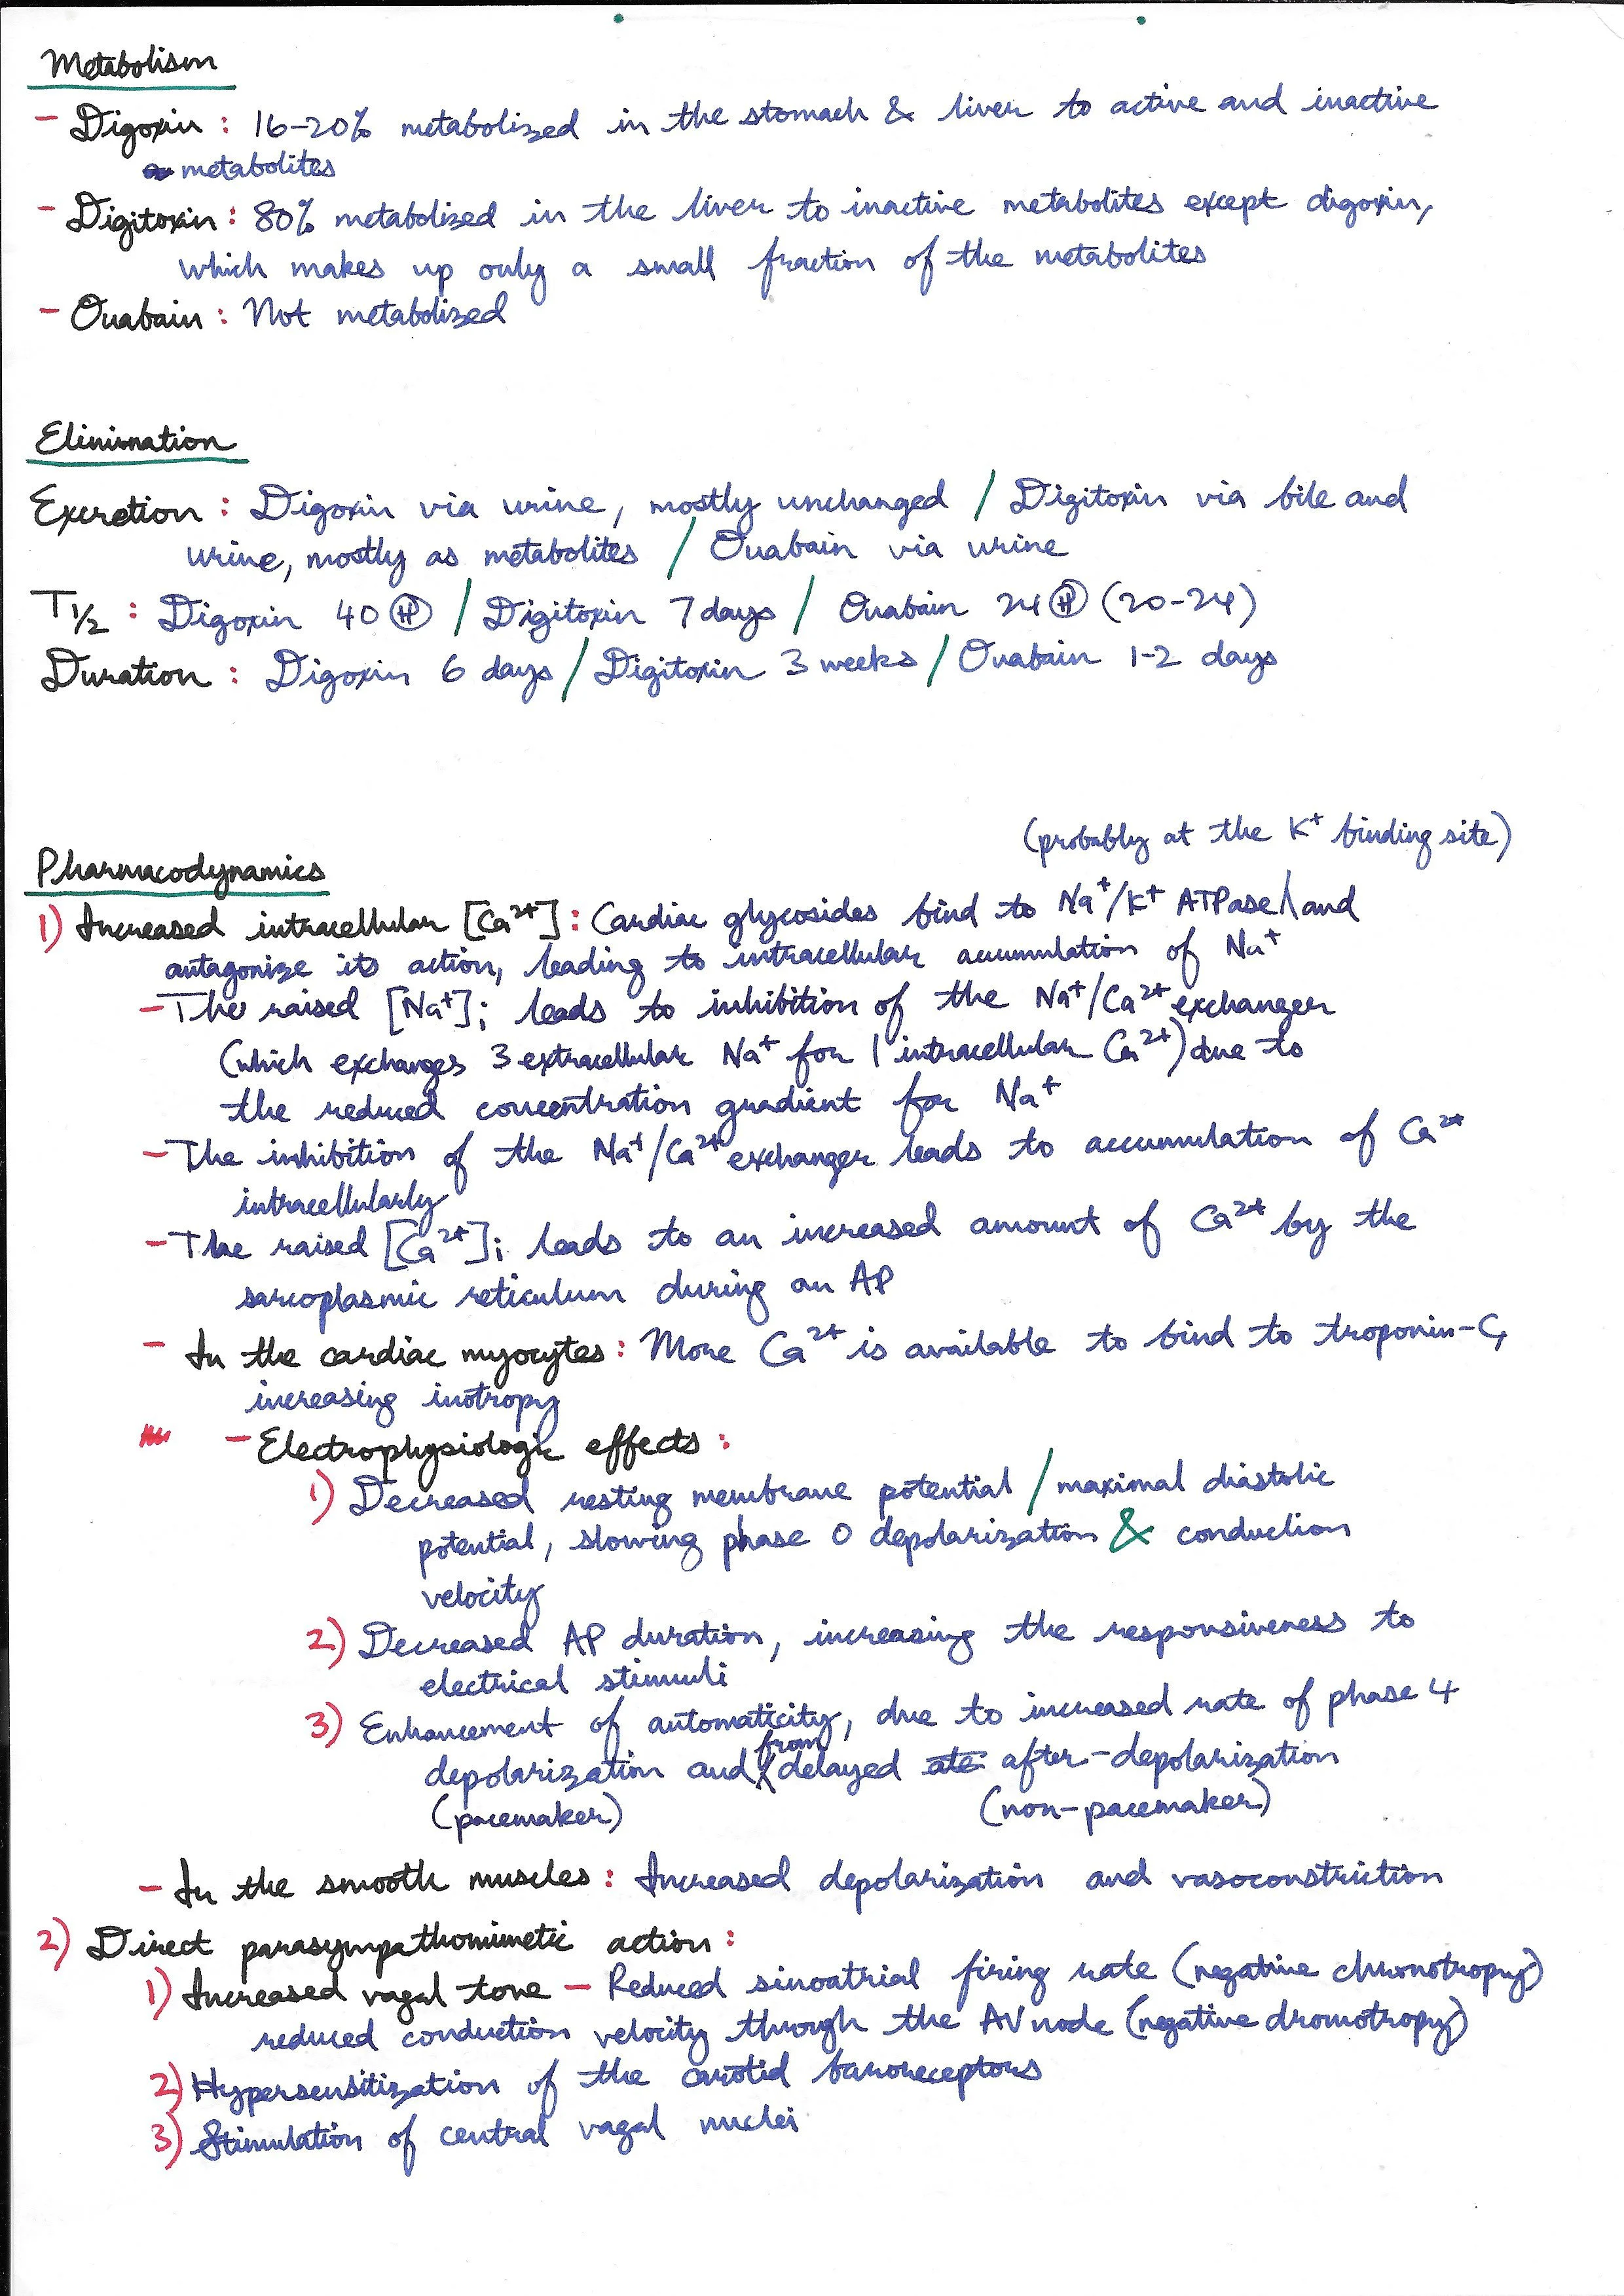 Metabolism
- Digoxin: 16-20% metabolized in the stomach & liver to active and inactive
metabolites
- Digitoxin: 80% metabolized in the liver to inactive metabolites except digoxin,
which makes up only a small fraction of the metabolites
- Ouabain: Not metabolized
Elimination
Excretion: Digoxin via urine, mostly unchanged / Digitoxin via bile and
urine, mostly as metabolites / Ouabain via urine
T1/2: Digoxin 40 Ⓗ / Digitoxin 7 days / Ouabain 24 Ⓗ (20-24)
Duration: Digoxin 6 days / Digitoxin 3 weeks / Ouabain 1-2 days
(probably at the K+ binding site)
Pharmacodynamics
1) Increased intracellular [Ca2+]: Cardiac glycosides bind to Na+/K+ ATPase and
antagonize its action, leading to intracellular accumulation of Na+
- The raised [Na+]i leads to inhibition of the Na+/Ca2+ exchanger
(which exchanges 3 extracellular Na+ for 1 intracellular Ca2+) due to
the reduced concentration gradient for Na+
- The inhibition of the Na+/Ca2+ exchanger leads to accumulation of Ca2+
intracellularly
- The raised [Ca2+]i leads to an increased amount of Ca2+ by the
sarcoplasmic reticulum during an AP
- In the cardiac myocytes: More Ca2+ is available to bind to troponin-C,
increasing inotropy
- Electrophysiologic effects:
1) Decreased resting membrane potential / maximal diastolic
potential, slowing phase 0 depolarization & conduction
velocity
2) Decreased AP duration, increasing the responsiveness to
electrical stimuli
3) Enhancement of automaticity, due to increased rate of phase 4
depolarization and from delayed after-depolarization
(pacemaker) (non-pacemaker)
- In the smooth muscles: Increased depolarization and vasoconstriction
2) Direct parasympathomimetic action:
1) Increased vagal tone - Reduced sinoatrial firing rate (negative chronotropy)
reduced conduction velocity through the AV node (negative dromotropy)
2) Hypersensitization of the carotid baroreceptors
3) Stimulation of central vagal nuclei